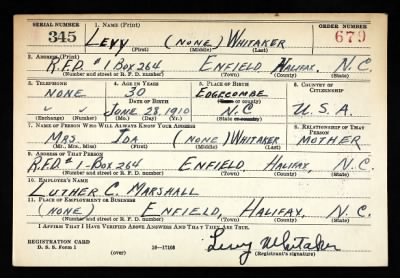 SERIAL NUMBER 1. NAME (Print) ORDER NUMBER
345 LEVY (NONE) WHITAKER 679
(First) (Middle) (Last)
2. ADDRESS (Print)
R.F.D. #1 BOX 264 ENFIELD HALIFAX, N.C.
(Number and street or R. F. D. number) (Town) (County) (State)
3. TELEPHONE 4. AGE IN YEARS 5. PLACE OF BIRTH 6. COUNTRY OF CITIZENSHIP
NONE 30 EDGECOMBE
DATE OF BIRTH (Town or county)
" " JUNE 28, 1910 N.C U.S.A.
(Exchange) (Number) (Mo.) (Day) (Yr.) (State or country)
7. NAME OF PERSON WHO WILL ALWAYS KNOW YOUR ADDRESS 8. RELATIONSHIP OF THAT PERSON
MRS. IDA (NONE) WHITAKER MOTHER
(Mr., Mrs., Miss) (First) (Middle) (Last)
9. ADDRESS OF THAT PERSON
R.F.D. #1-BOX 264 ENFIELD HALIFAX, N.C.
(Number and street or R. F. D. number) (Town) (County) (State)
10. EMPLOYER'S NAME
LUTHER C. MARSHALL
11. PLACE OF EMPLOYMENT OR BUSINESS
(NONE) ENFIELD, HALIFAX, N.C.
(Number and street or R. F. D. number) (Town) (County) (State)
I AFFIRM THAT I HAVE VERIFIED ABOVE ANSWERS AND THAT THEY ARE TRUE.
REGISTRATION CARD
D. S. S. Form 1 (over) 16—17105 Levy Whitaker
(Registrant's signature)